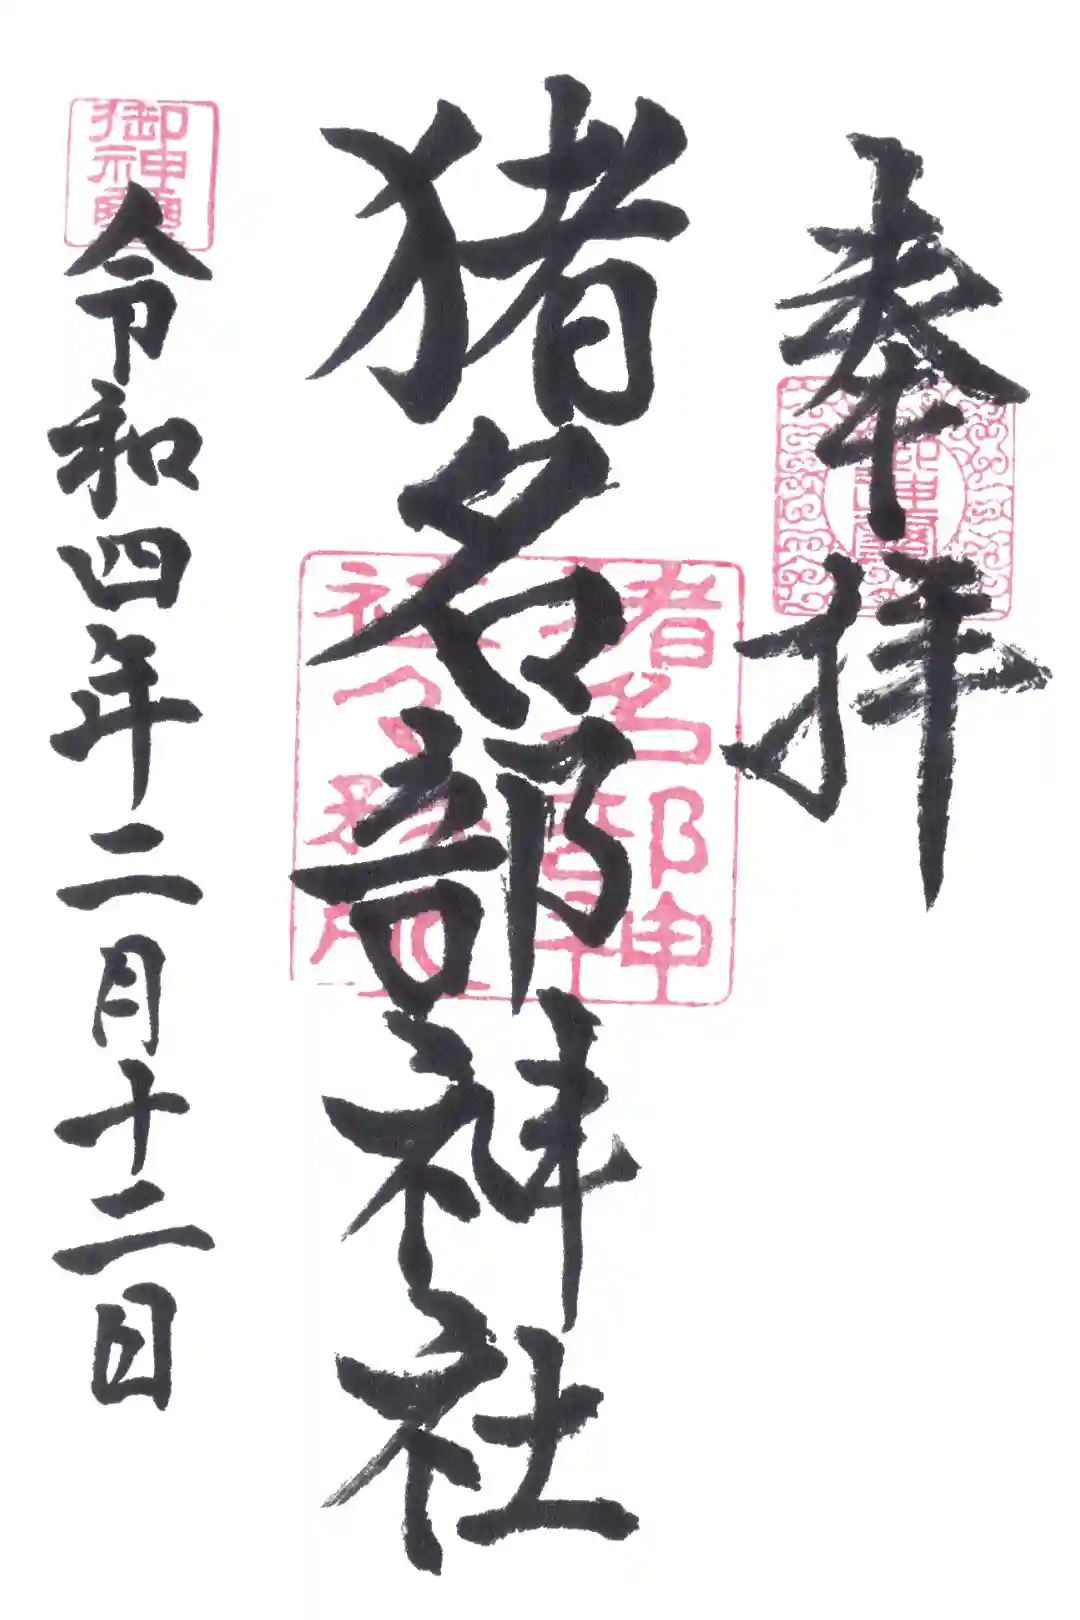 奉拝
猪名部神社
令和四年二月十二日
猪名部神
社
御神璽